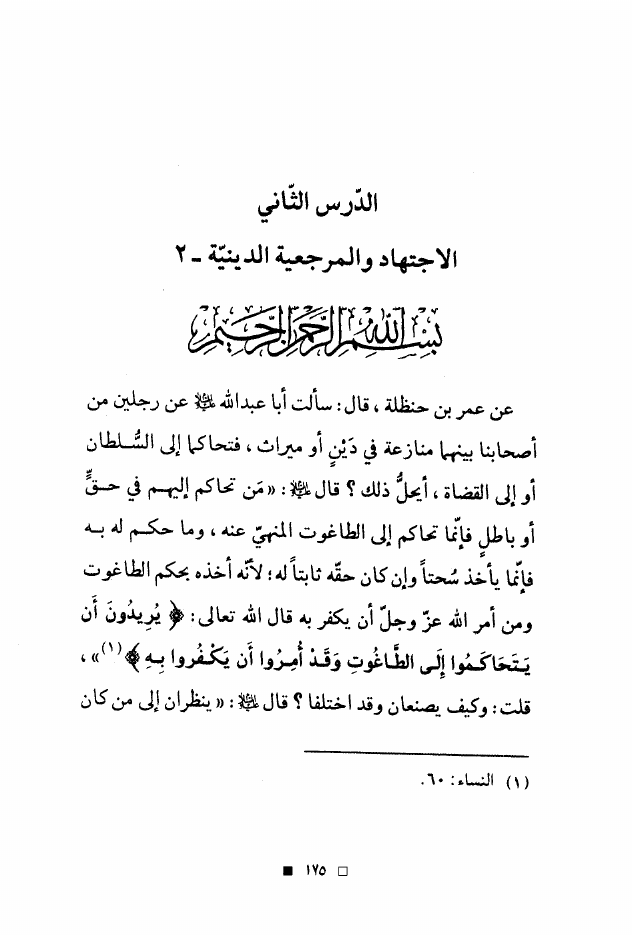 الدّرس الثّاني
الاجتهاد والمرجعية الدينيّة ـ ٢
بسم الله الرحمن الرحيم
عن عمر بن حنظلة ، قال: سألت أبا عبدالله عليه السلام عن رجلين من
أصحابنا بينهما منازعة في دَيْنٍ أو ميراث ، فتحاكما إلى السُّـلطان
أو إلى القضاة ، أيحلُّ ذلك ؟ قال عليه السلام: «مَن تحاكم إليهـم في حـقٍّ
أو باطلٍ فإنّما تحاكم إلى الطاغوت المنهيّ عنه ، وما حكـم له بـه
فإنّما يأخذ سُحتاً وإن كان حقّه ثابتاً له؛ لأنّه أخذه بحكم الطاغوت
ومن أمر الله عزّ وجلّ أن يكفر به قال الله تعالى: ﴿ يُرِيدُونَ أَن
يَتَحَاكَمُوا إِلَى الطَّاغُوتِ وَقَدْ أُمِرُوا أَن يَكْفُروا بِهِ ﴾(١)» ،
قلت: وكيف يصنعان وقد اختلفا ؟ قال عليه السلام: « ينظران إلى من كان
(١) النساء: ٦٠.
□ ١٧٥ ■